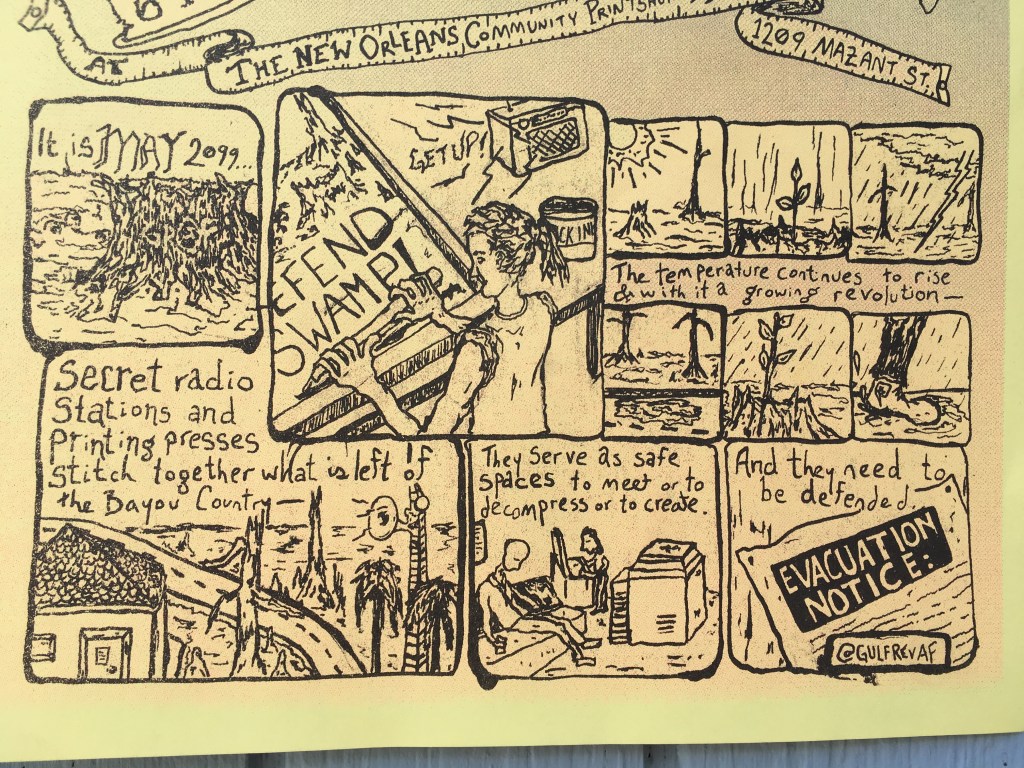 AT
THE NEW ORLEANS COMMUNITY PRINTSHOP
1209 MAZANT ST.
It is MAY 2099...
GET UP!
CK INK
EFEND
SWAMP!
The temperature continues to rise
& with it a growing revolution—
Secret radio
Stations and
printing presses
stitch together what is left of
the Bayou Country—
They serve as safe
spaces to meet or to
decompress or to create.
And they need to
be defended.
EVACUATION
NOTICE:
@GULFREVAF